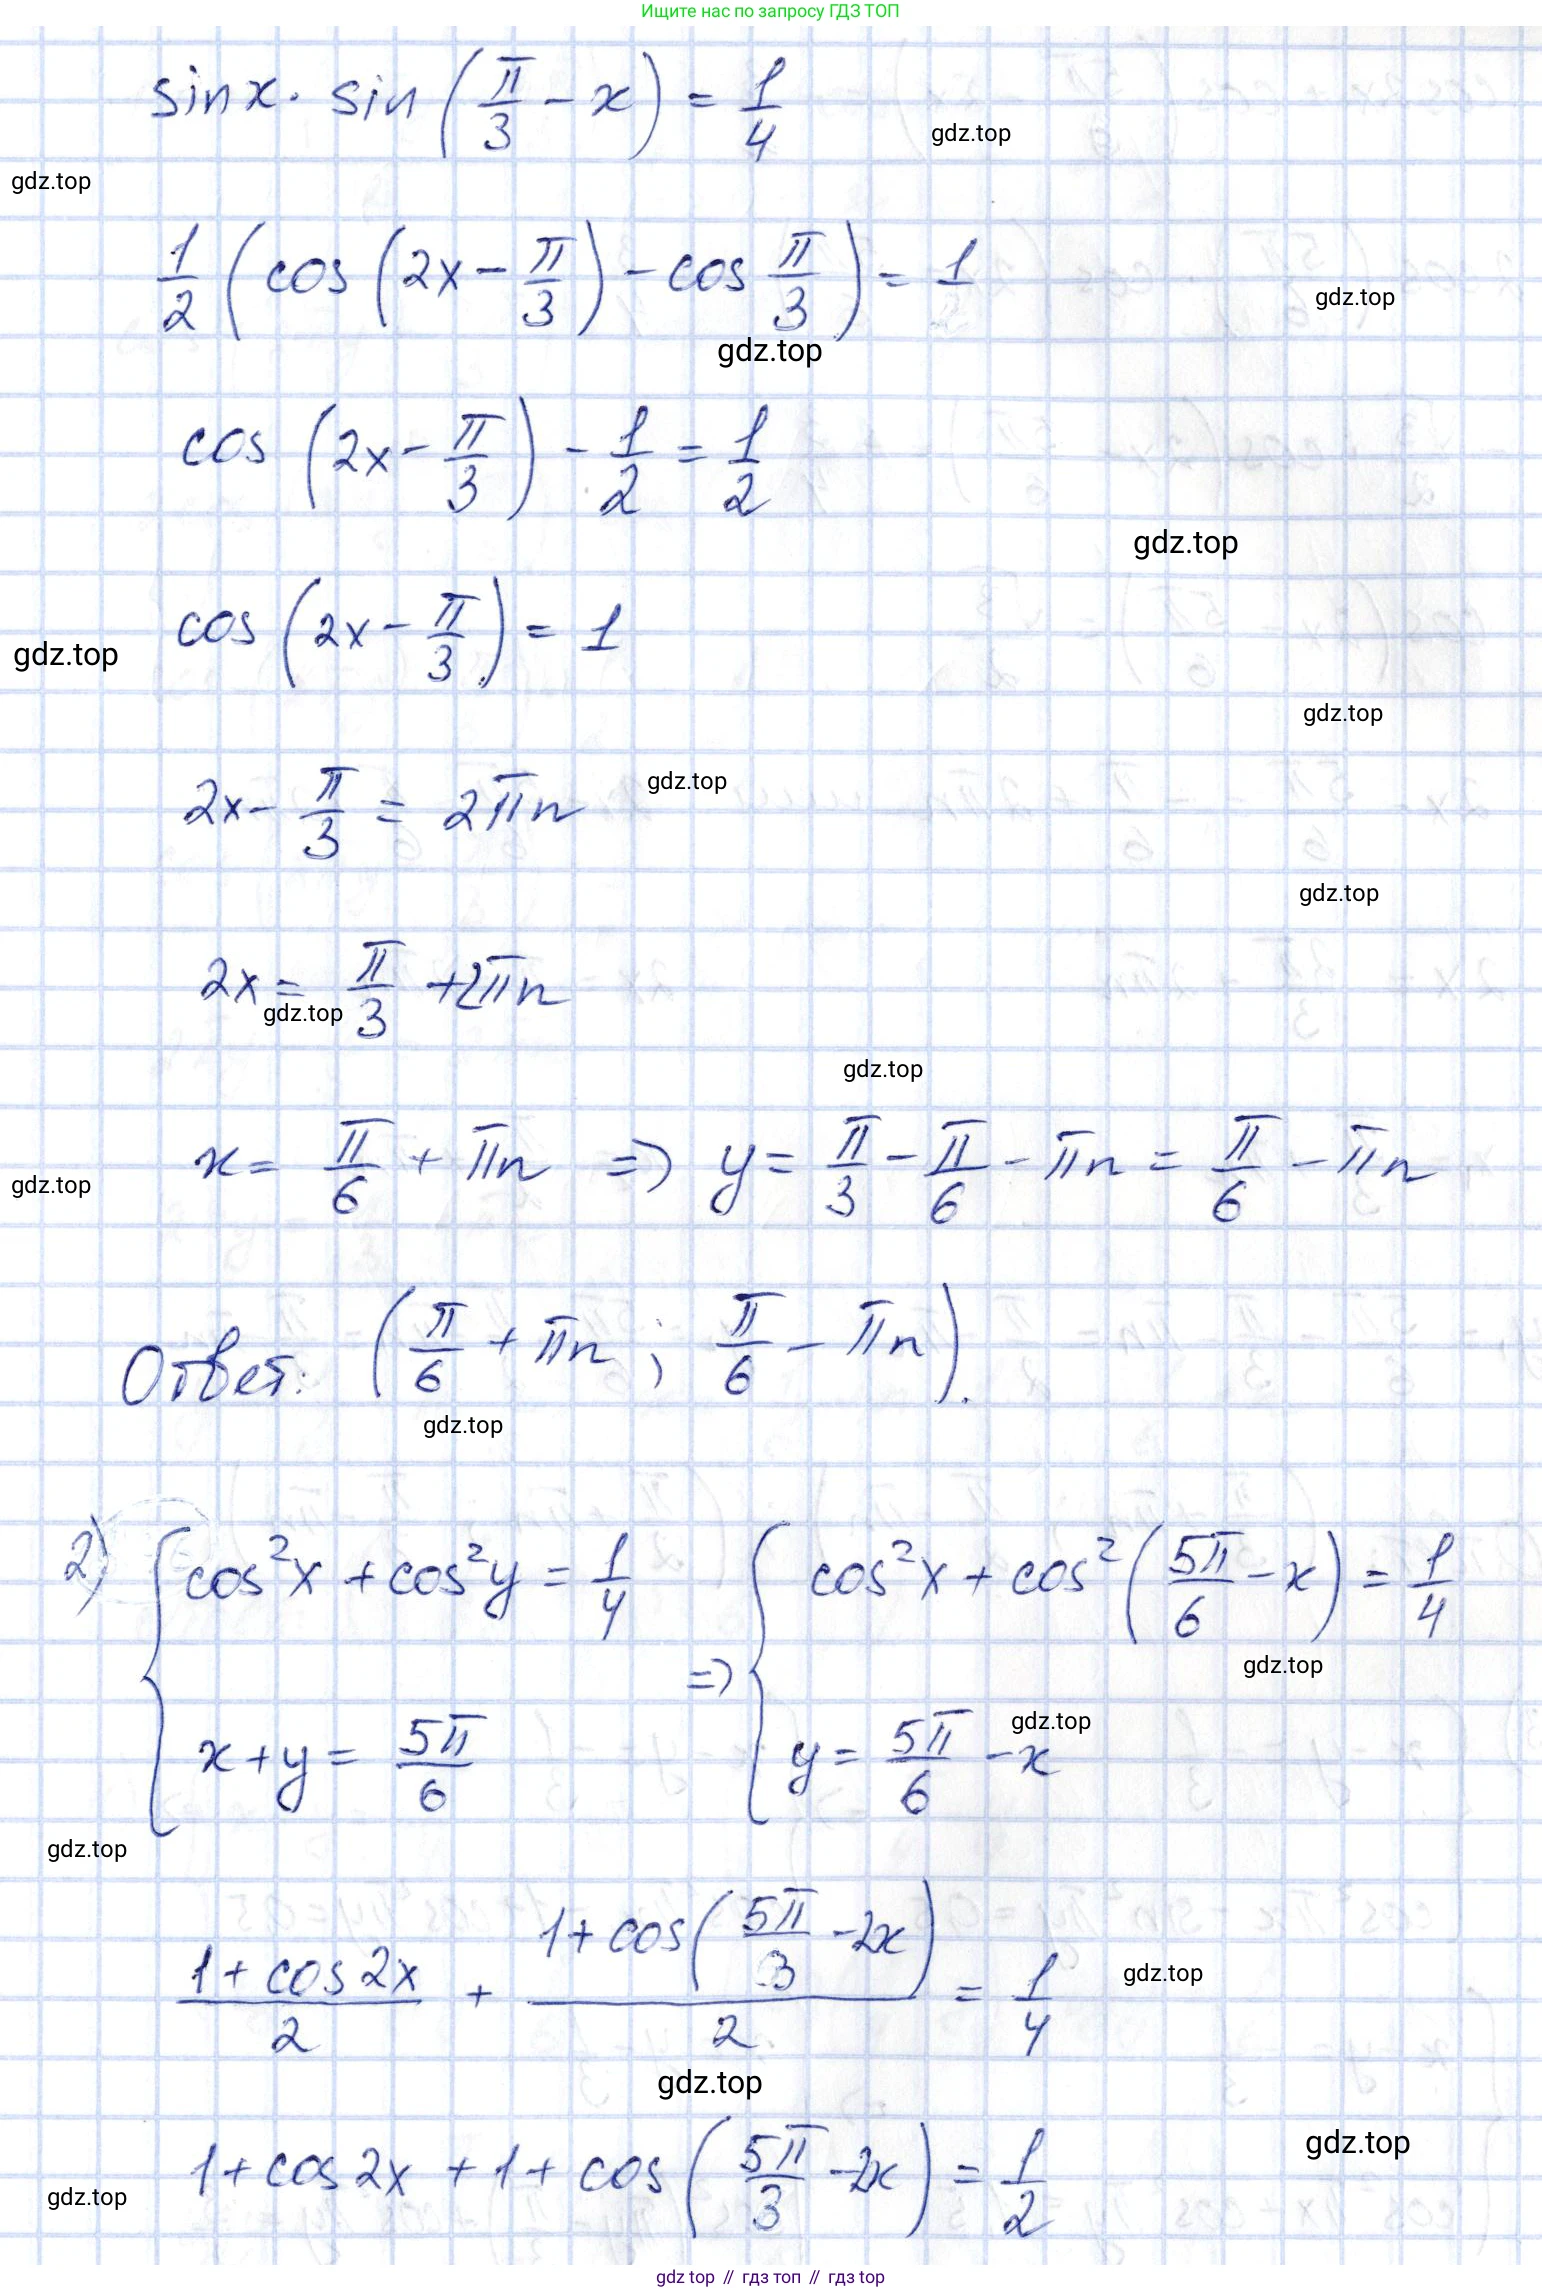 Ищите нас по запросу ГДЗ ТОП
sin x · sin (π/3 − x) = 1/4
gdz.top
gdz.top
1/2 (cos (2x − π/3) − cos π/3) = 1
gdz.top
gdz.top
cos (2x − π/3) − 1/2 = 1/2
gdz.top
cos (2x − π/3) = 1
gdz.top
gdz.top
2x − π/3 = 2πn
gdz.top
gdz.top
2x = π/3 + 2πn
gdz.top
gdz.top
x = π/6 + πn ⇒ y = π/3 − π/6 − πn = π/6 − πn
gdz.top
Ответ: (π/6 + πn ; π/6 − πn).
gdz.top
2) { cos²x + cos²y = 1/4 ⇒ { cos²x + cos²(5π/6 − x) = 1/4
gdz.top
x + y = 5π/6 y = 5π/6 − x
gdz.top
gdz.top
(1 + cos 2x)/2 + (1 + cos(5π/3 − 2x))/2 = 1/4
gdz.top
gdz.top
1 + cos 2x + 1 + cos (5π/3 − 2x) = 1/2
gdz.top
gdz.top
gdz top // гдз топ // гдз top